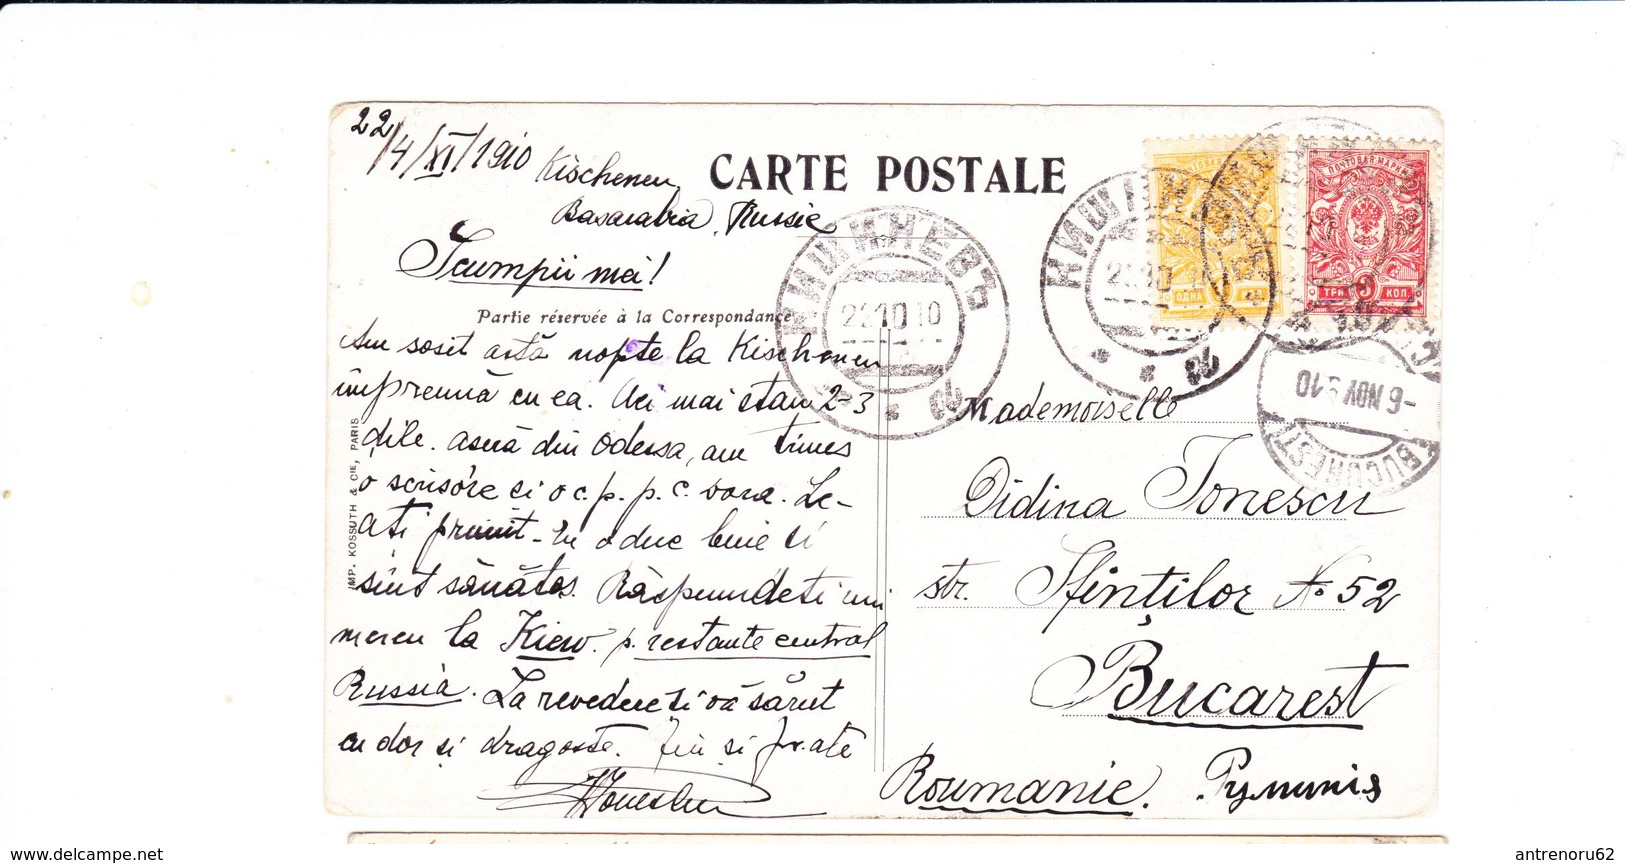 22/4/XI/1910
Kischeneu,
Basarabia, Russie
CARTE POSTALE
Scumpii mei!
Partie réservée à la Correspondance
Am sosit astă nopte la Kischeneu
împreună cu ea. Aci mai stau 2-3
dile. aseră din Odessa, am trimes
o scrisóre si o c. p. p. c. vora. Le-
ati primit - Eu o duc bine si
sînt sănătos. Răspundeti-mi
mereu la Kiew. p. restante central
Russia. La revedere si vă sărut
cu dor și dragoste. fiu si frate
Ionescu
IMP. KOSSUTH & CIE, PARIS
КИШИНЕВЪ
22 10 10
КИШИН
ПОЧТОВАЯ МАРКА
ОДНА
ТРИ 3 КОП
-6 NOV 910
BUCUREST
Mademoiselle
Didina Ionescu
str. Sfinților No 52
Bucarest
Roumanie. Румынія
antrenoru62